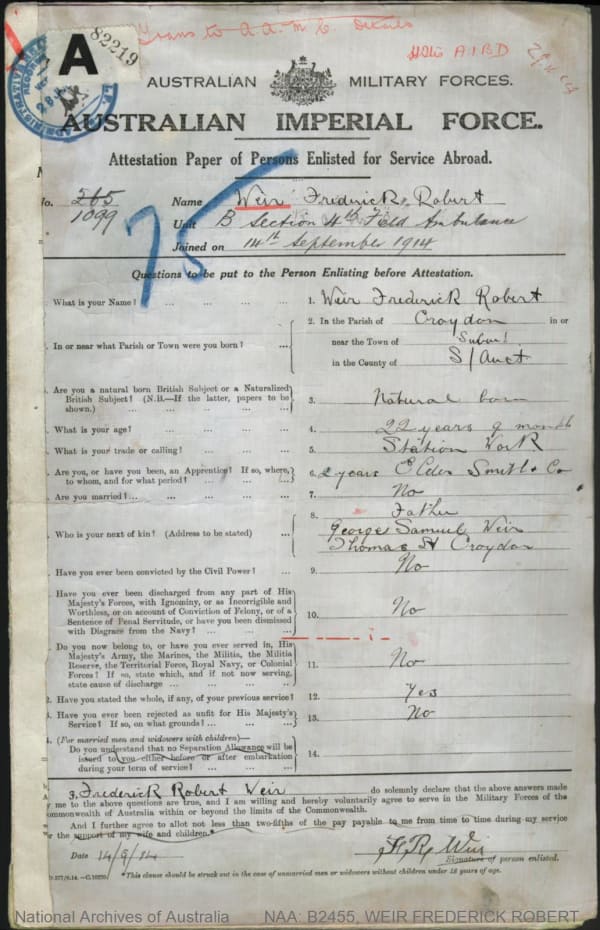 Trans to A.A.M.C Details
A 82219
AUSTRALIAN MILITARY FORCES.
AUSTRALIAN IMPERIAL FORCE.
Attestation Paper of Persons Enlisted for Service Abroad.
No. 265 Name Weir Frederick Robert
1099 Unit B Section 4th Field Ambulance
75
Joined on 14th September 1914
Questions to be put to the Person Enlisting before Attestation.
What is your Name? ... ... ... ... 1. Weir Frederick Robert
In or near what Parish or Town were you born? ... 2. In the Parish of Croydon in or
near the Town of
in the County of S/Aust
Are you a natural born British Subject or a Naturalized
British Subject? (N.B.—If the latter, papers to be
shown.) ... ... ... ... 3. Natural born
What is your age? ... ... ... ... 4. 22 years 9 month
What is your trade or calling? ... ... ... 5. Station Work
Are you, or have you been, an Apprentice? If so, where,
to whom, and for what period? ... ... 6. 2 years Elder Smith & Co
Are you married? ... ... ... ... 7. No
Who is your next of kin? (Address to be stated) ... 8. Father
George Samuel Weir
Thomas St Croydon
Have you ever been convicted by the Civil Power? ... 9. No
Have you ever been discharged from any part of His
Majesty's Forces, with Ignominy, or as Incorrigible and
Worthless, or on account of Conviction of Felony, or of a
Sentence of Penal Servitude, or have you been dismissed
with Disgrace from the Navy? ... ... ... 10. No
Do you now belong to, or have you ever served in, His
Majesty's Army, the Marines, the Militia, the Militia
Reserve, the Territorial Force, Royal Navy, or Colonial
Forces? If so, state which, and if not now serving,
state cause of discharge ... ... ... ... 11. No
2. Have you stated the whole, if any, of your previous service? 12. Yes
3. Have you ever been rejected as unfit for His Majesty's
Service? If so, on what grounds? ... ... ... 13. No
4. (For married men and widowers with children)—
Do you understand that no Separation Allowance will be
issued to you either before or after embarkation
during your term of service? ... ... ... 14.
Frederick Robert Weir do solemnly declare that the above answers made
by me to the above questions are true, and I am willing and hereby voluntarily agree to serve in the Military Forces of the
Commonwealth of Australia within or beyond the limits of the Commonwealth.
And I further agree to allot not less than two-fifths of the pay payable to me from time to time during my service
for the support of my wife and children.*
Date 14/9/14 F. R. Weir
Signature of person enlisted.
*This clause should be struck out in the case of unmarried men or widowers without children under 18 years of age.
National Archives of Australia NAA: B2455, WEIR FREDERICK ROBERT